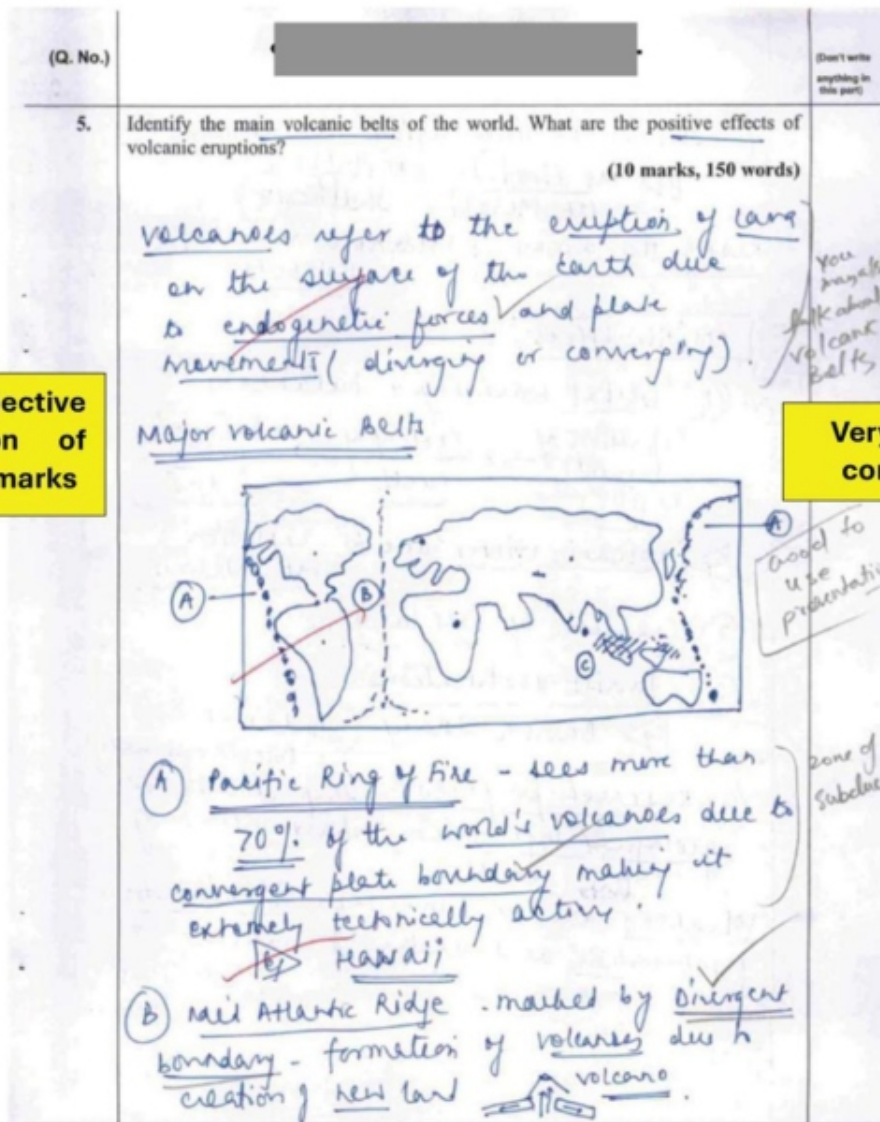 (Q. No.)
(Don't write
anything in
this part)
5. Identify the main volcanic belts of the world. What are the positive effects of
volcanic eruptions?
(10 marks, 150 words)
Volcanoes refer to the eruption of lava
on the surface of the Earth due
to endogenetic forces and plate
movements (diverging or converging).
You
talk about
volcanic
belts
ective
on of
marks
Major Volcanic Belts
Very
con
A
A
B
C
Good to
use
presentati
A Pacific Ring of Fire - sees more than
70% of the world's volcanoes due to
convergent plate boundary making it
extremely tectonically active.
eg Hawaii
zone of
subduc
B Mid Atlantic Ridge - marked by Divergent
boundary - formation of volcanoes due to
creation of new land
volcano